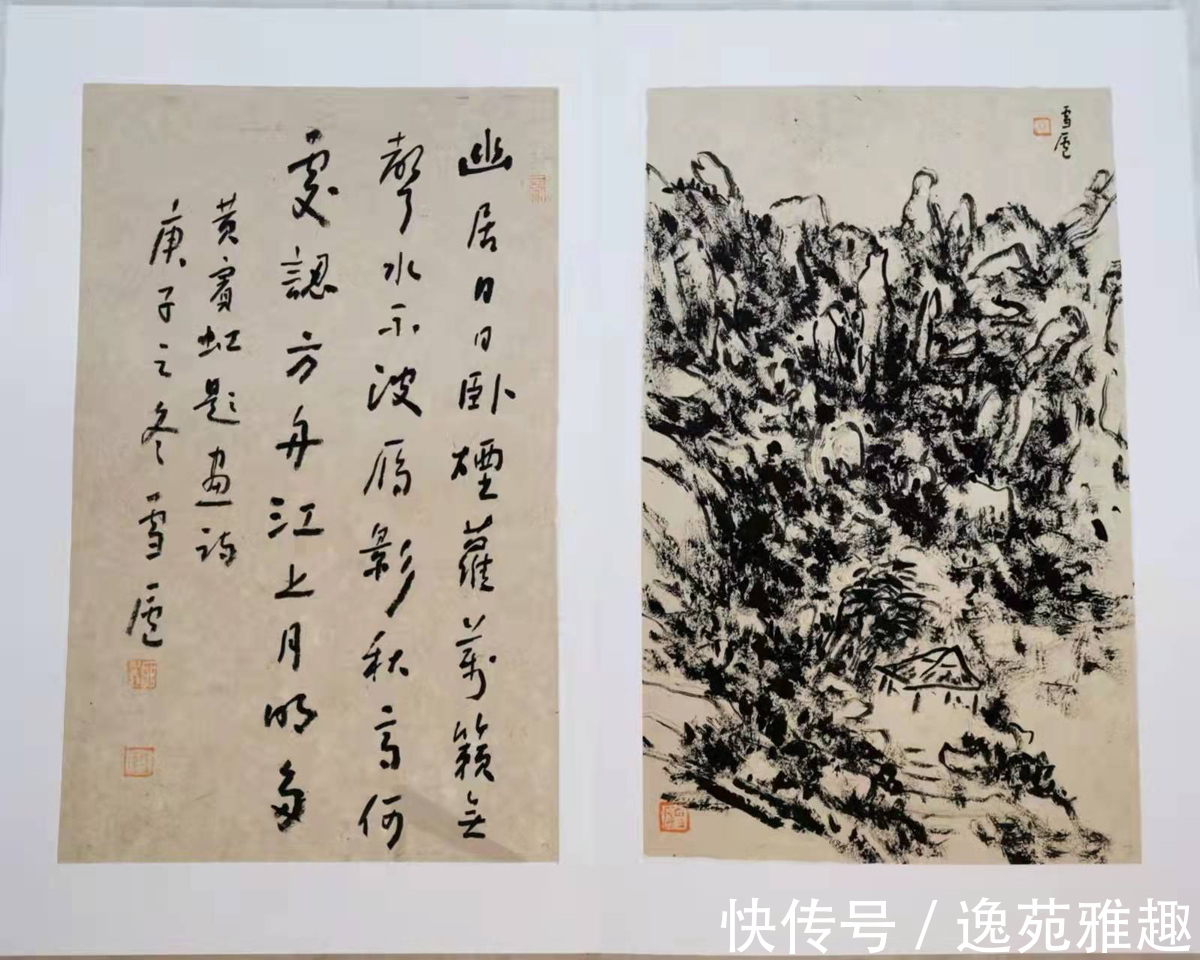 幽居日日卧煙蘿萬籟無
聲水不波雁影秋高何
處認方舟江上月明多
黄賓虹題畫詩
庚子之冬雪廬
雪廬
快传号 / 逸苑雅趣